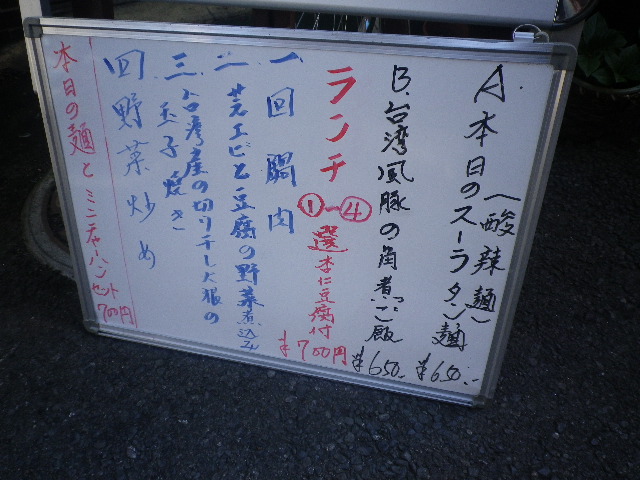 A.本日のスーラタン麺 ¥650.-
(酸辣麺)
B.台湾風豚の角煮ご飯 ¥650.-
ランチ ①-④選 杏仁豆腐付 ¥700円
一 回鍋肉
二 芝エビと豆腐の野菜煮込み
三 台湾産の切り干し大根の
玉子焼き
四 野菜炒め
本日の麺とミニチャーハンセット700円